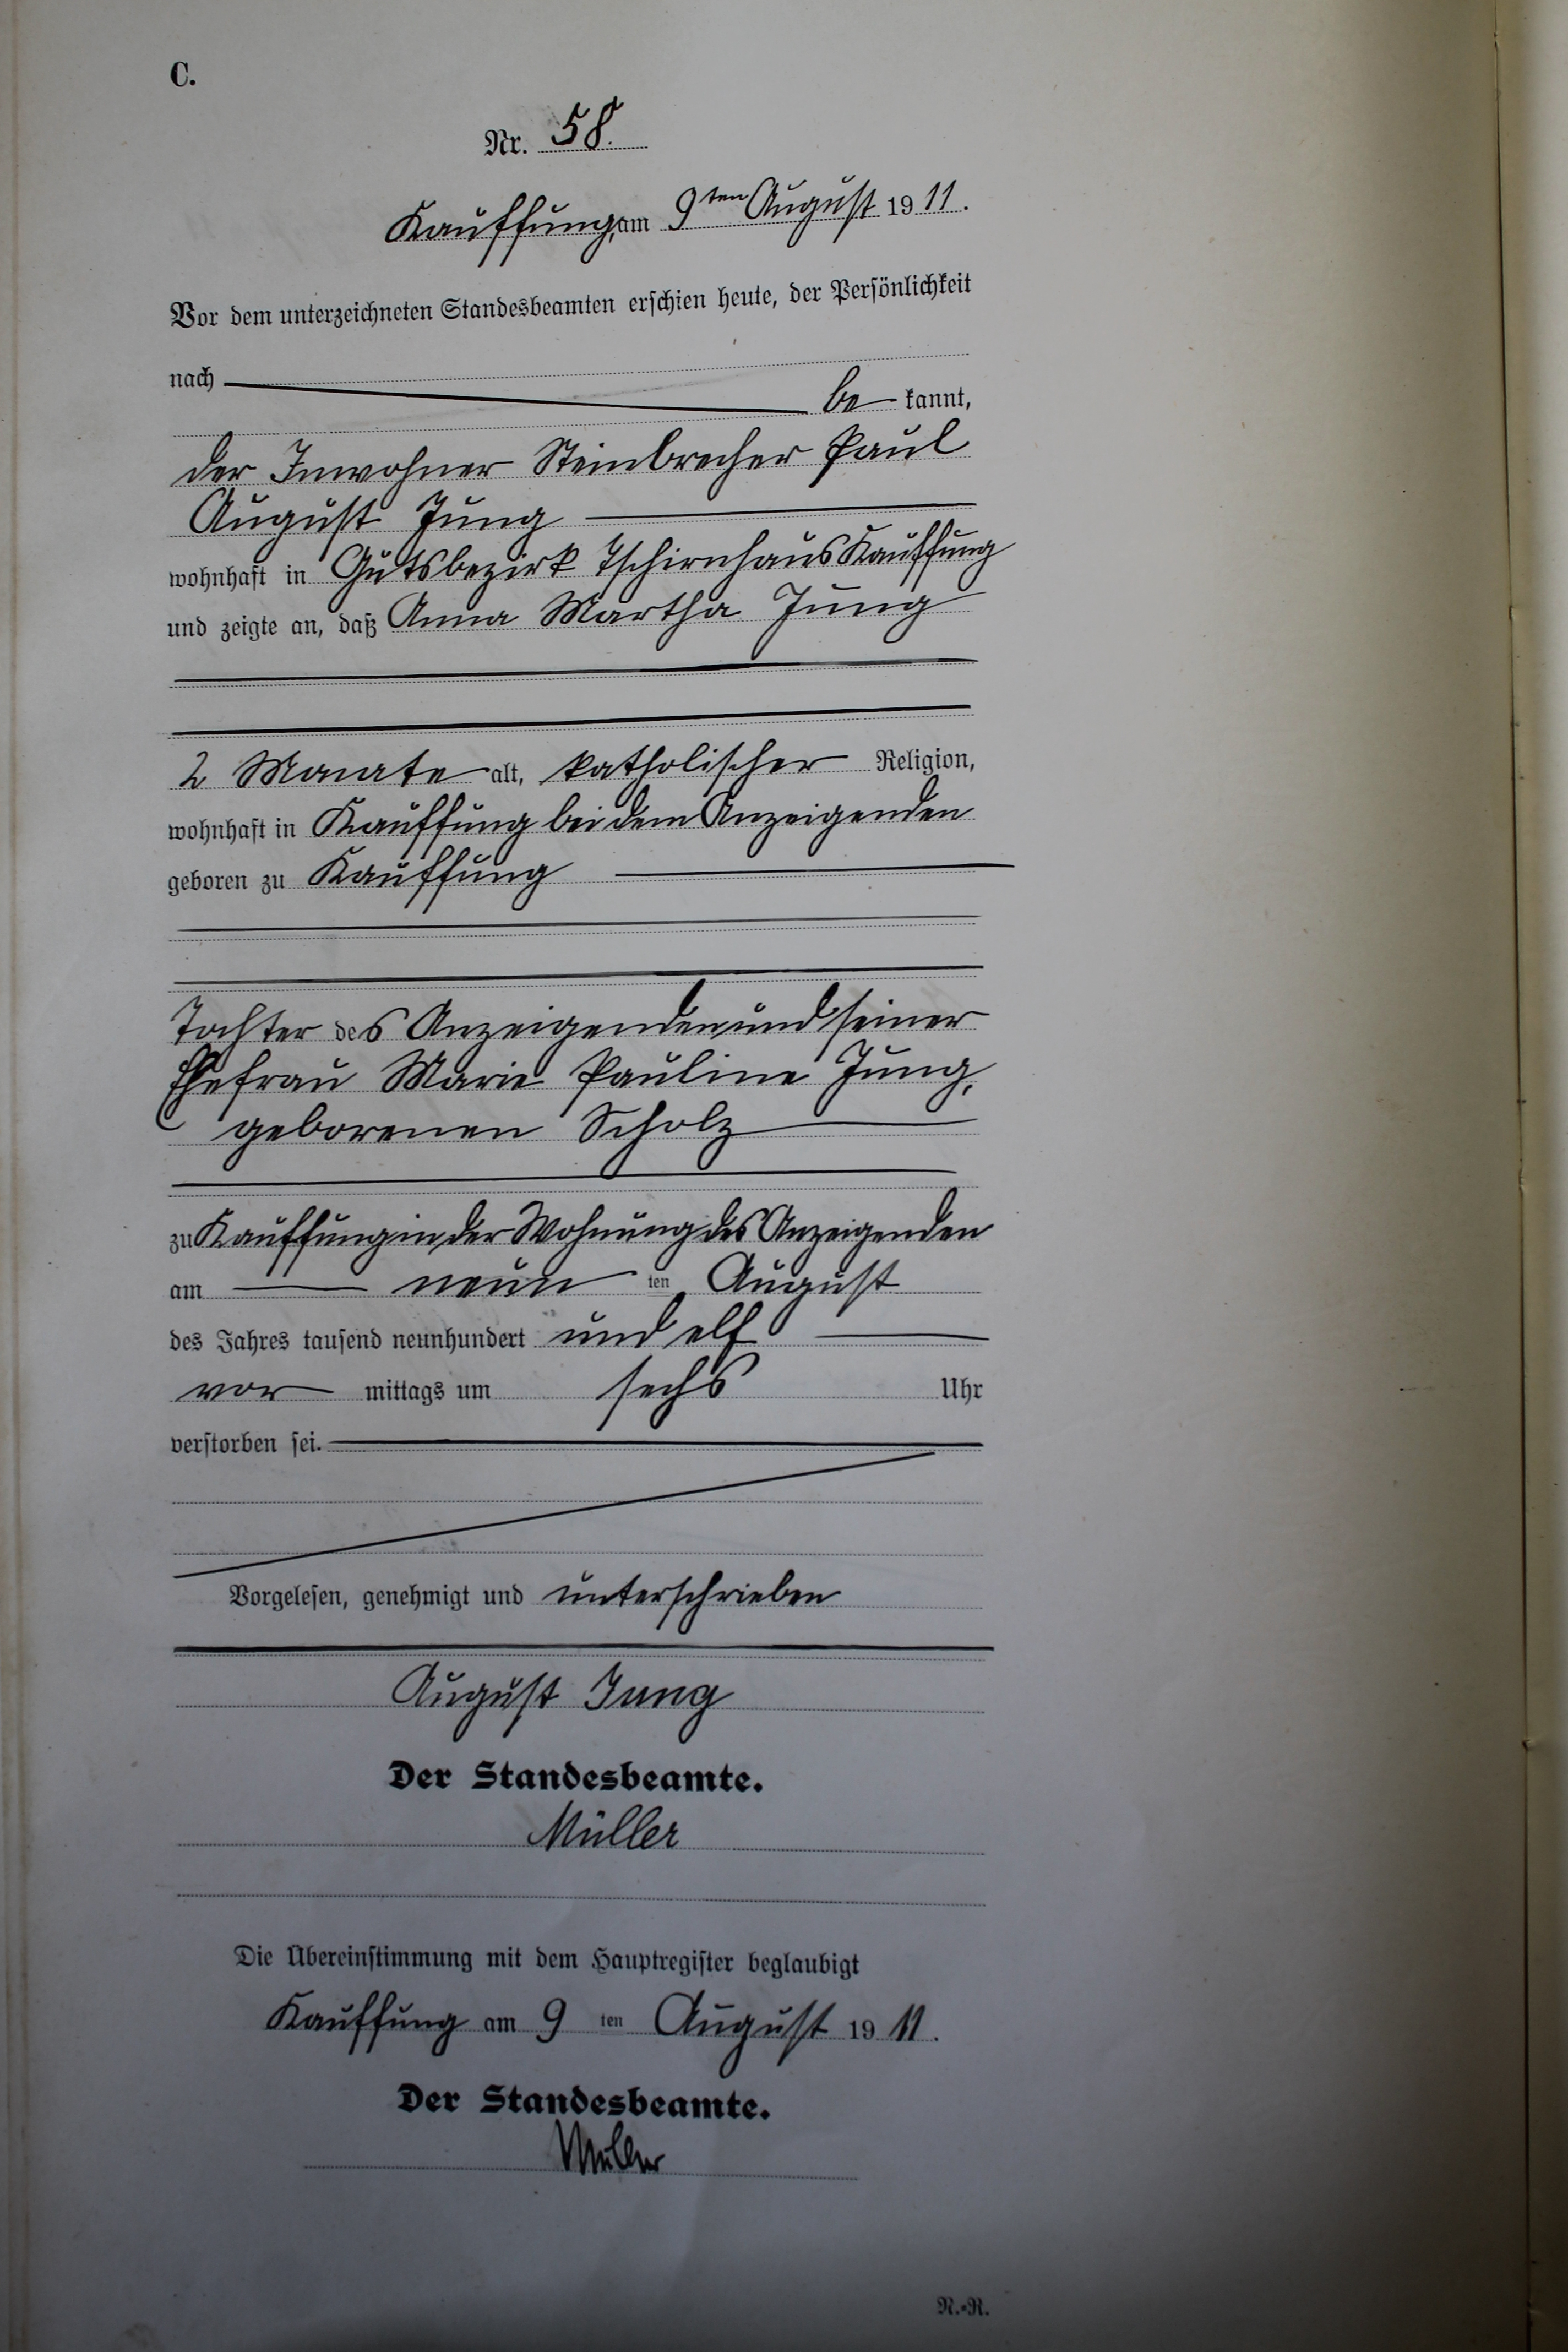 C.
Nr. 58.
Kauffung, am 9ten August 1911.
Vor dem unterzeichneten Standesbeamten erschien heute, der Persönlichkeit
nach
be kannt,
der Inwohner Steinbrecher Paul
August Jung
wohnhaft in Gutsbezirk Tschirnhaus Kauffung
und zeigte an, daß Anna Martha Jung
2 Monate alt, katholischer Religion,
wohnhaft in Kauffung bei dem Anzeigenden
geboren zu Kauffung
Tochter des Anzeigenden und seiner
Ehefrau Marie Pauline Jung,
geborenen Scholz
zu Kauffung in der Wohnung des Anzeigenden
am neun ten August
des Jahres tausend neunhundert und elf
vor mittags um sechs Uhr
verstorben sei.
Vorgelesen, genehmigt und unterschrieben
August Jung
Der Standesbeamte.
Müller
Die Übereinstimmung mit dem Hauptregister beglaubigt
Kauffung am 9 ten August 1911.
Der Standesbeamte.
Müller
N.=R.